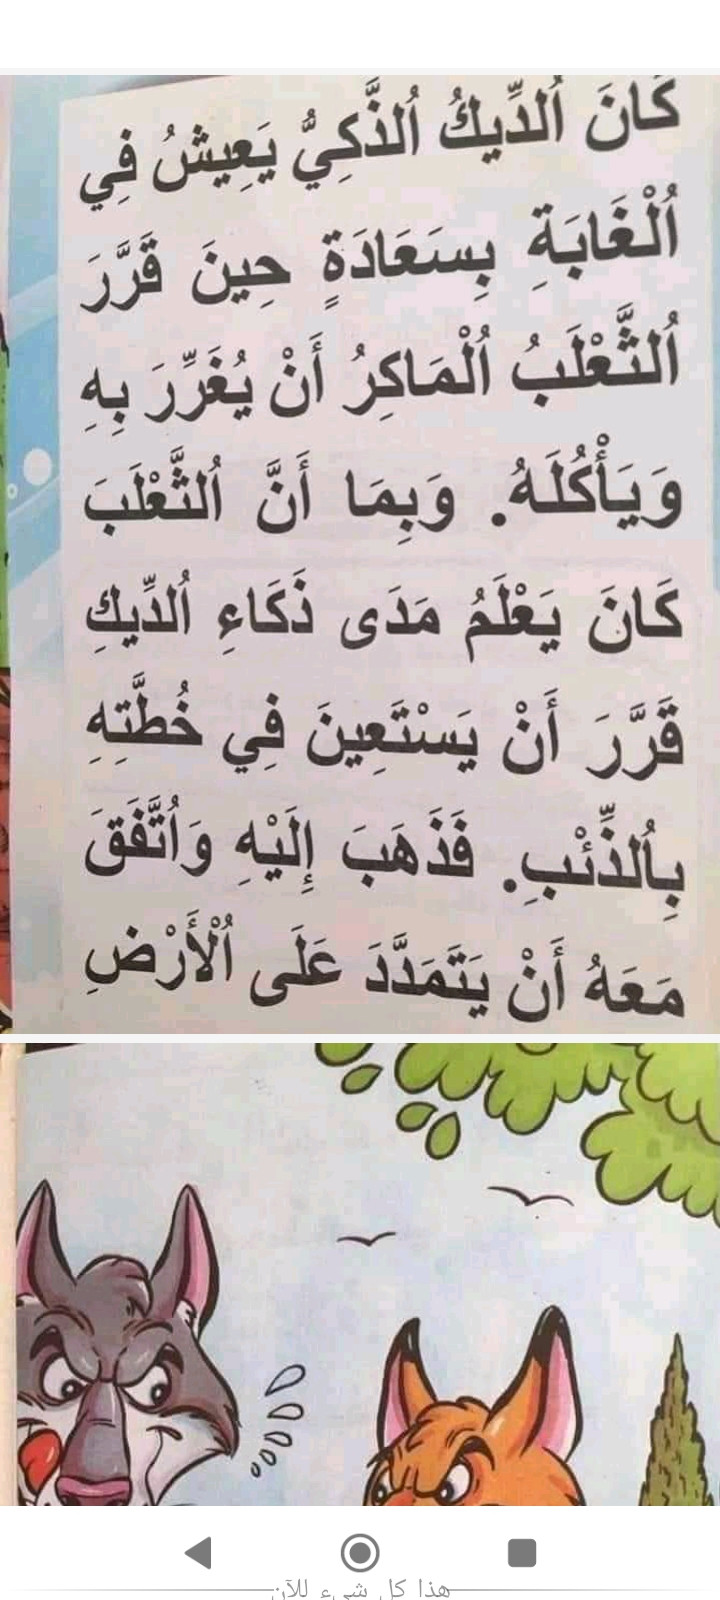 كَانَ ٱلدِّيكُ ٱلذَّكِيُّ يَعِيشُ فِي
ٱلْغَابَةِ بِسَعَادَةٍ حِينَ قَرَّرَ
ٱلثَّعْلَبُ ٱلْمَاكِرُ أَنْ يُغَرِّرَ بِهِ
وَيَأْكُلَهُ. وَبِمَا أَنَّ ٱلثَّعْلَبَ
كَانَ يَعْلَمُ مَدَى ذَكَاءِ ٱلدِّيكِ
قَرَّرَ أَنْ يَسْتَعِينَ فِي خُطَّتِهِ
بِٱلذِّئْبِ. فَذَهَبَ إِلَيْهِ وَٱتَّفَقَ
مَعَهُ أَنْ يَتَمَدَّدَ عَلَى ٱلْأَرْضِ
هذا كل شيء للآن